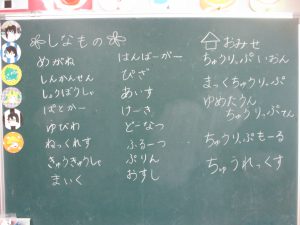 しなもの
めがね
しんかんせん
しょうぼうしゃ
ぱとかー
ゆびわ
ねっくれす
きゅうきゅうしゃ
まいく
はんばーがー
ぴざ
あいす
けーき
どーなつ
ふるーつ
ぷりん
おすし
おみせ
ちゅうりっぷいおん
まっくちゅうりっぷ
ゆめたうん
ちゅうりっぷてん
ちゅうりっぷもーる
ちゅうれっくす